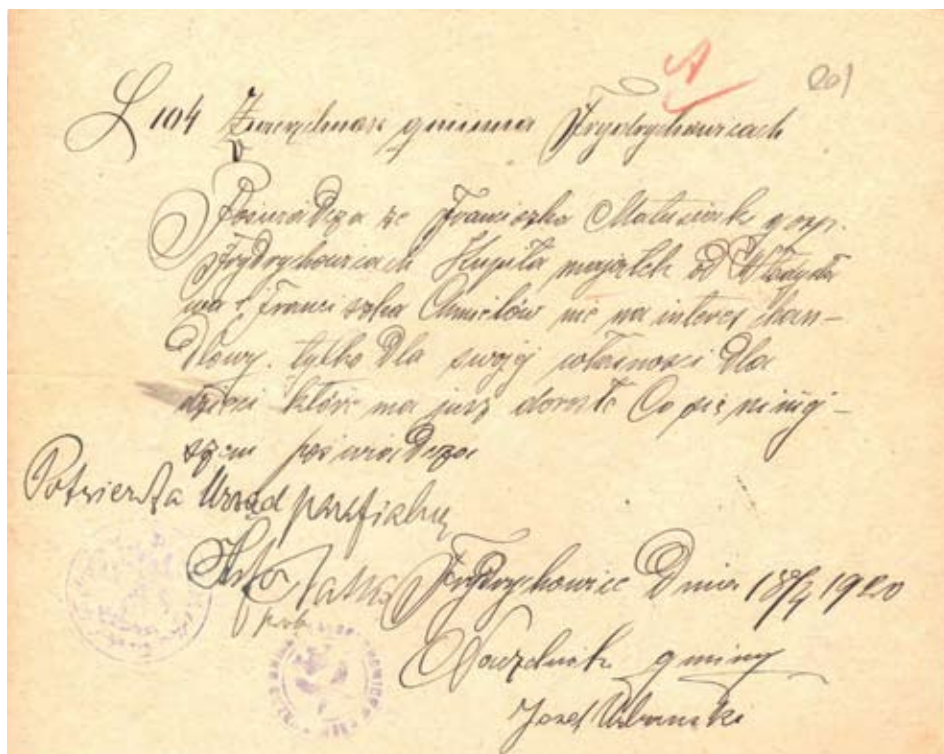 201
L 104 Zwierzchność gminna Frydrychowicach
Poświadcza że Franciszka Matusiak gosp.
Frydrychowicach Kupiła majątek od Władysła
wa i Franciszka Chmielów nie na interes Chan-
Dlowy. tylko Dla swojej własności Dla
dzieci które ma jusz dorosłe Co się niniej-
szem poświadcza
Potwierdza Urząd parafialny
Frydrychowice Dnia 18/4 1920
Naczelnik gminy
Józef Urbański